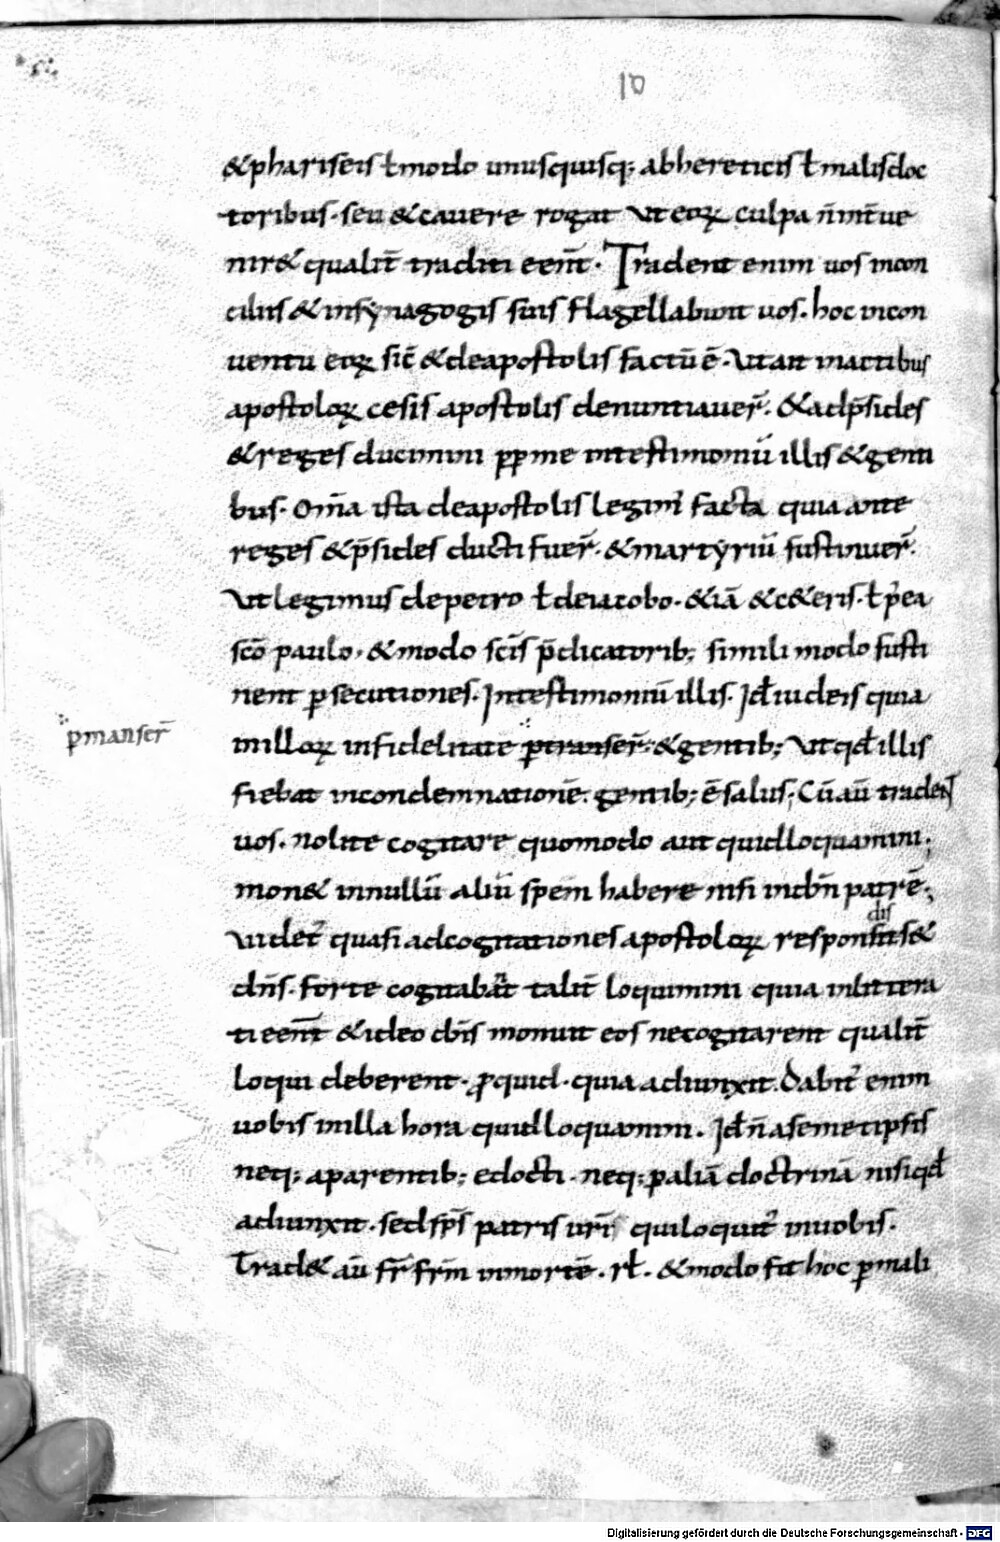 10
&phariseis ł modo unusquisq; abhereticis ł malisdoc
toribus· seu &cauere rogat Ut eoꝝ culpa n̄ int̄ ue
nir& qualit̄ traditi een̄t· Tradent enim uos incon
ciliis &insẏnagogis suis flagellabunt uos. hoc incon
uentu eoꝝ sic̄ &deapostolis factū ē· Ut aīt inactibus
apostoloꝝ cesis apostolis denuntiauer̄. &adp̄sides
&reges ducimini ꝓpꝑ me intestimoniū illis &genti
bus· Om̄a ista deapostolis legim̛ facta quia ante
reges &p̄sides ducti fuer̄. &martẏriū sustinuer̄.
Ut legimus depetro ł deiacobo· &iā &c&eris· ł p̄ea
sc̄o paulo, &modo sc̄is p̄dicatorib; simili modo susti
nent ꝑsecutiones. Intestimoniū illis. Id̄ iudeis quia
ꝑmanser̄
inilloꝝ infidelitate ꝑtranser̄· &gentib; Ut qd̄ illis
fiebat incondemnationē. gentib; ē salus; Cū aū traden̄t
uos. nolite cogitare quomodo aut quid loquamini;
mon& innullū aliū spem habere nisi indn̄ patrē;
dis
Uidet̛ quasi adcogitationes apostoloꝝ responsits&
dn̄s. forte cogitabāt talit̄ loquimini quia inlittera
ti een̄t &ideo dn̄s monuit eos necogitarent qualit̄
loqui deberent· ꝓquid· quia adiunxit. Dabit̛ enim
uobis inilla hora quid loquamini. Id̄ n̄ asemetipsis
neq; aparentib; edocti· neq; ꝑ aliā doctrinā nisi qd̄
adiunxit· sed sp̄s patris ur̄i quiloquit̛ inuobis.
Trad& aū fr̄ fr̄m inmortē. rł. &modo fit hoc ꝑ mali
Digitalisierung gefördert durch die Deutsche Forschungsgemeinschaft - DFG